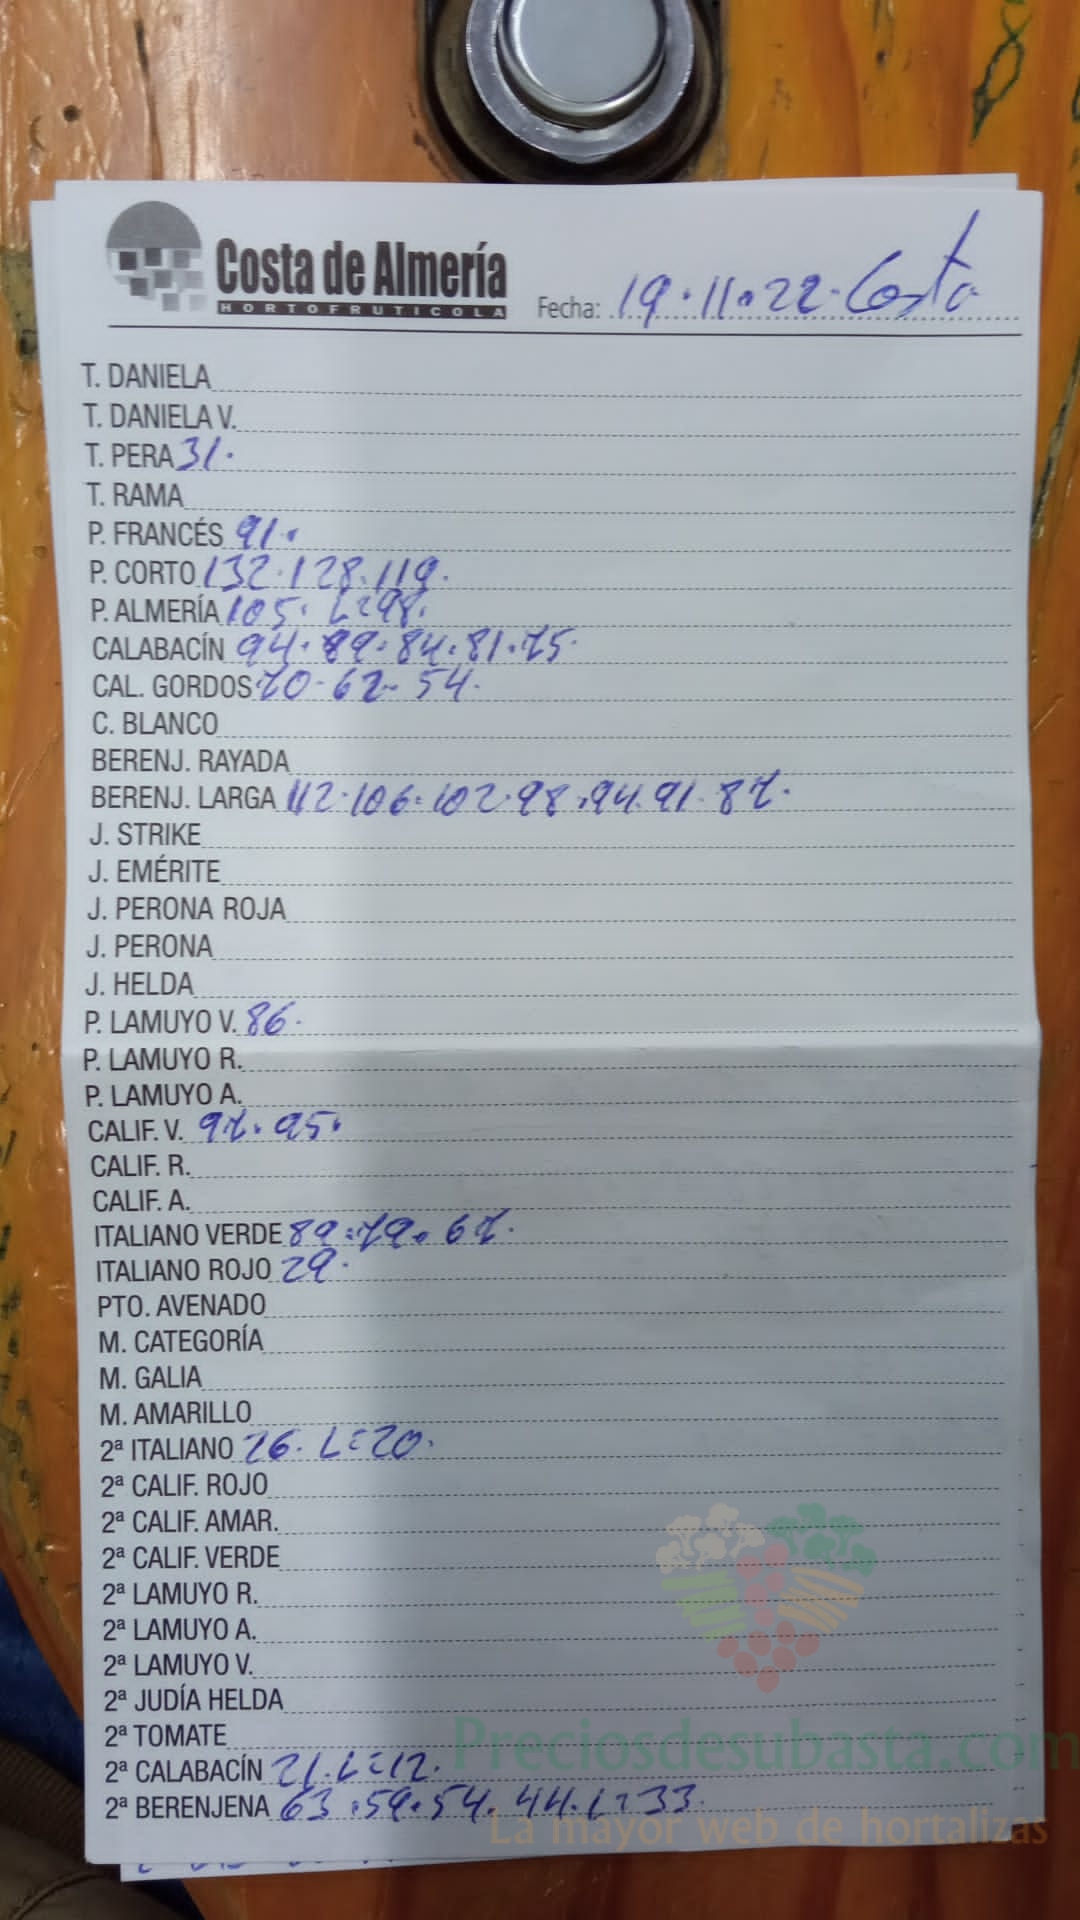 Costa de Almería
HORTOFRUTICOLA
Fecha: 19.11.22. Costa
T. DANIELA
T. DANIELA V.
T. PERA 31.
T. RAMA
P. FRANCÉS 91.
P. CORTO 132.128.119.
P. ALMERÍA 105. L=98.
CALABACÍN 94.89.84.81.75.
CAL. GORDOS 70-62-54.
C. BLANCO
BERENJ. RAYADA
BERENJ. LARGA 112.106.102.98.94.91.87.
J. STRIKE
J. EMÉRITE
J. PERONA ROJA
J. PERONA
J. HELDA
P. LAMUYO V. 86.
P. LAMUYO R.
P. LAMUYO A.
CALIF. V. 97.95.
CALIF. R.
CALIF. A.
ITALIANO VERDE 89.79.67.
ITALIANO ROJO 29.
PTO. AVENADO
M. CATEGORÍA
M. GALIA
M. AMARILLO
2ª ITALIANO 26. L=20.
2ª CALIF. ROJO
2ª CALIF. AMAR.
2ª CALIF. VERDE
2ª LAMUYO R.
2ª LAMUYO A.
2ª LAMUYO V.
2ª JUDÍA HELDA
2ª TOMATE
2ª CALABACÍN 21. L=12.
2ª BERENJENA 63.59.54.44. L=33.
Preciosdesubasta.com
La mayor web de hortalizas